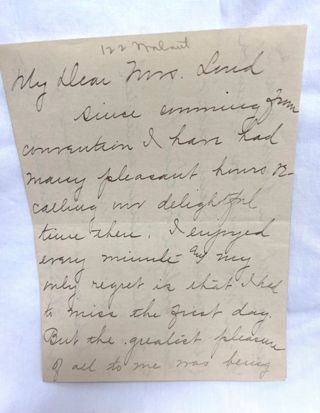 122 Walnut
My Dear Mrs. Lord
Since comming from
convention I have had
many pleasant hours re-
calling our delightful
time then. I enjoyed
every minute and my
only regret is that I had
to miss the first day.
But the greatist pleasure
of all to me was being